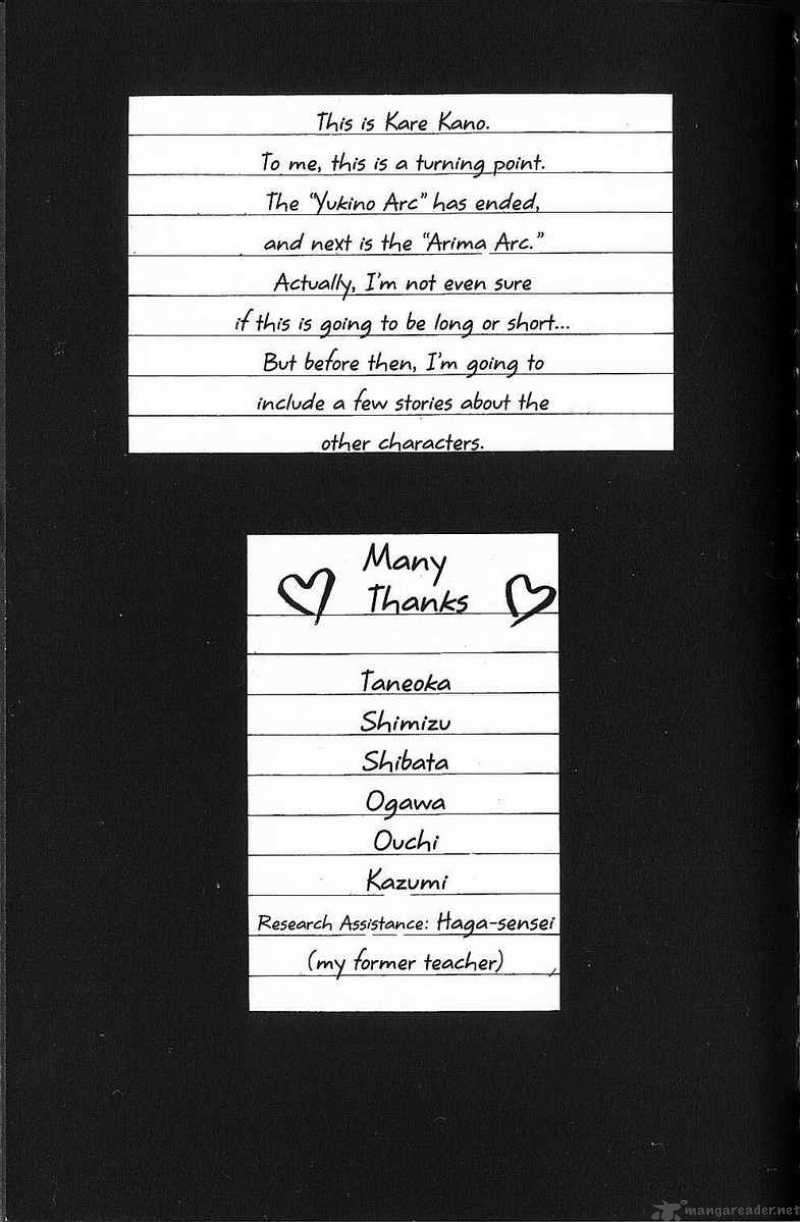 This is Kare Kano.
To me, this is a turning point.
The "Yukino Arc" has ended,
and next is the "Arima Arc."
Actually, I'm not even sure
if this is going to be long or short...
But before then, I'm going to
include a few stories about the
other characters.
Many
Thanks
Taneoka
Shimizu
Shibata
Ogawa
Ouchi
Kazumi
Research Assistance: Haga-sensei
(my former teacher)
mangareader.net